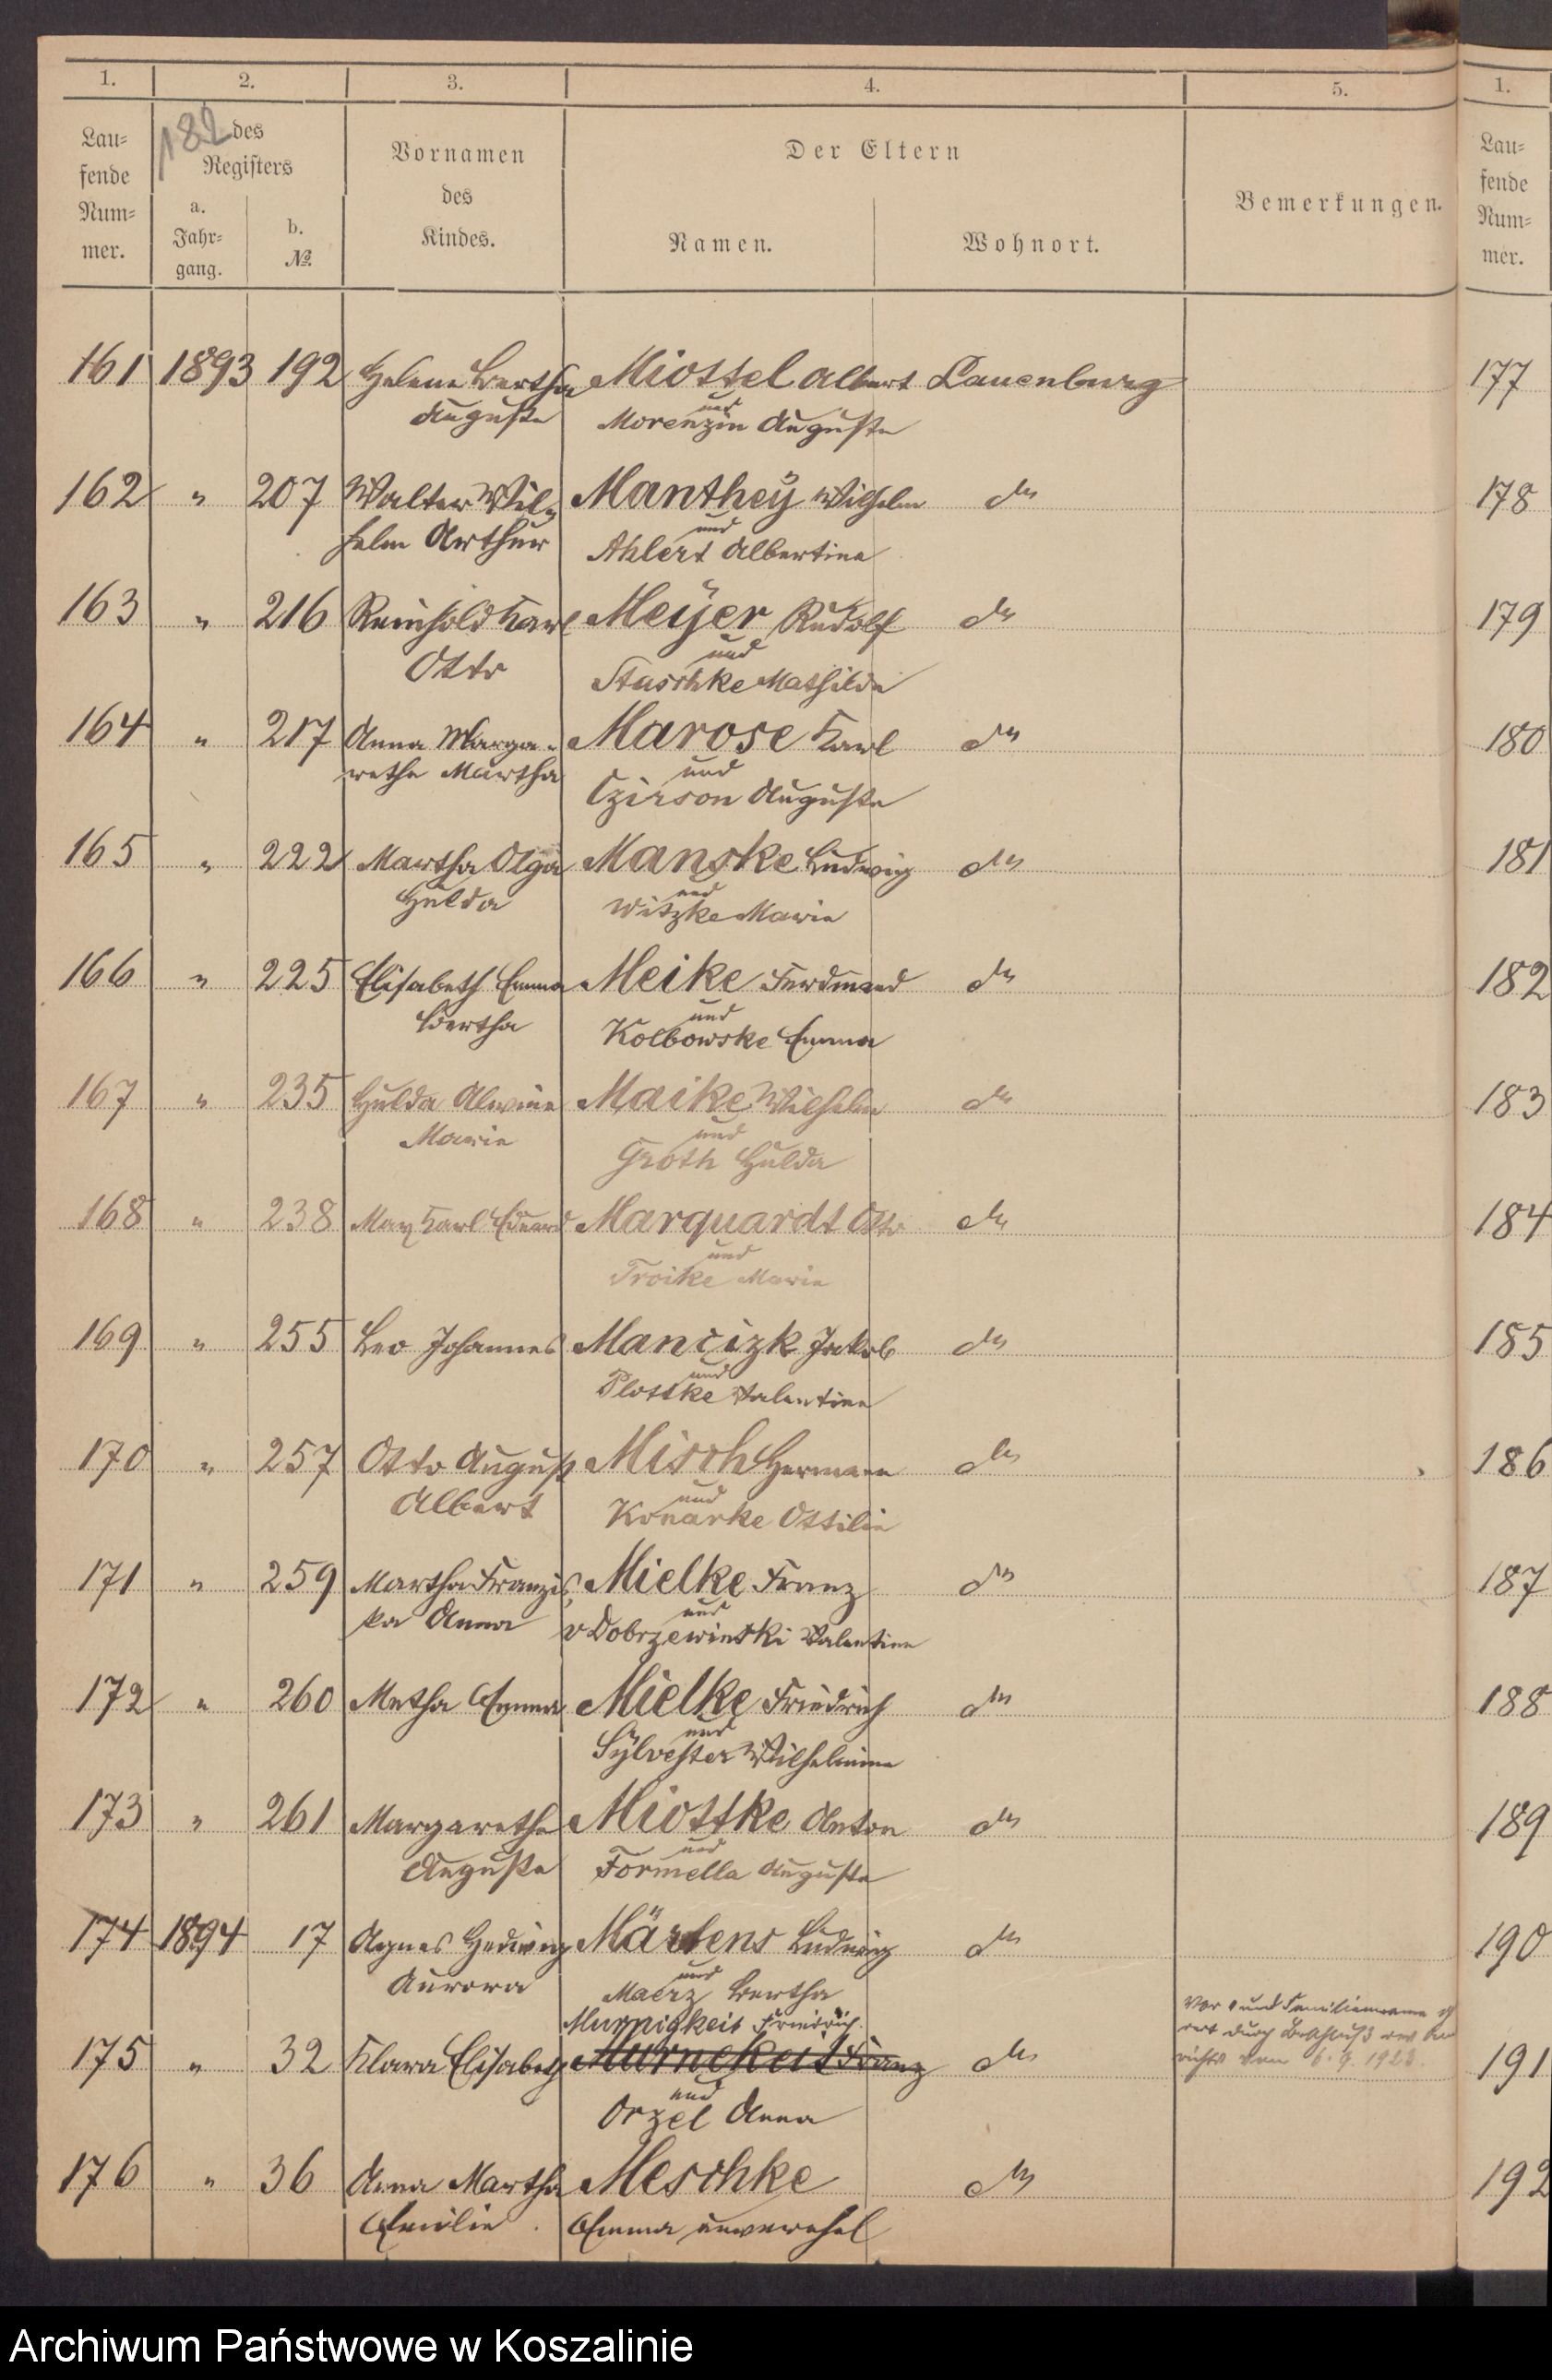 1. 2. 3. 4. 5. 1.
182
Lau=
fende
Num=
mer.
des
Registers
a.
Jahr=
gang.
b.
№.
Vornamen
des
Kindes.
Der Eltern
Namen. Wohnort.
Bemerkungen.
Lau=
fende
Num=
mer.
161 1893 192 Helene Bertha Miottel Albert Lauenburg 177
und
Auguste Morenzin Auguste
162 " 207 Walter Wil= Manthey Wilhelm do 178
und
helm Arthur Ahlert Albertine
163 " 216 Reinhold Karl Meyer Rudolf do 179
und
Otto Staschke Mathilde
164 " 217 Anna Marga= Marose Karl do 180
und
rethe Martha Czirson Auguste
165 " 222 Martha Olga Manske Ludwig do 181
und
Hulda Witzke Marie
166 " 225 Elisabeth Emma Meike Ferdinand do 182
und
Bertha Kolbowske Emma
167 " 235 Hulda Alwine Maike Wilhelm do 183
und
Marie Groth Hulda
168 " 238 Max Karl Eduard Marquardt Otto do 184
und
Troike Marie
169 " 255 Leo Johannes Mancizk Jakob do 185
und
Plottke Valentine
170 " 257 Otto August Misch Hermann do 186
und
Albert Konarke Ottilie
171 " 259 Martha Franzis= Mielke Franz do 187
und
ka Anna v Dobrzewinski Valentine
172 " 260 Metha Emma Mielke Friedrich do 188
und
Sylvester Wilhelmine
173 " 261 Margarethe Miottke Anton do 189
und
Auguste Formella Auguste
174 1894 17 Agnes Hedwig Märtens Ludwig do 190
und
Aurora Maerz Bertha
Murnigkeit Friedrich.
Vor und Familienname
durch Beschluß
vom 6.9.1923.
175 " 32 Klara Elisabeth Murnekeit Franz do 191
und
Orzel Anna
176 " 36 Anna Martha Meschke do 192
Emilie. Emma unverehel
Archiwum Państwowe w Koszalinie